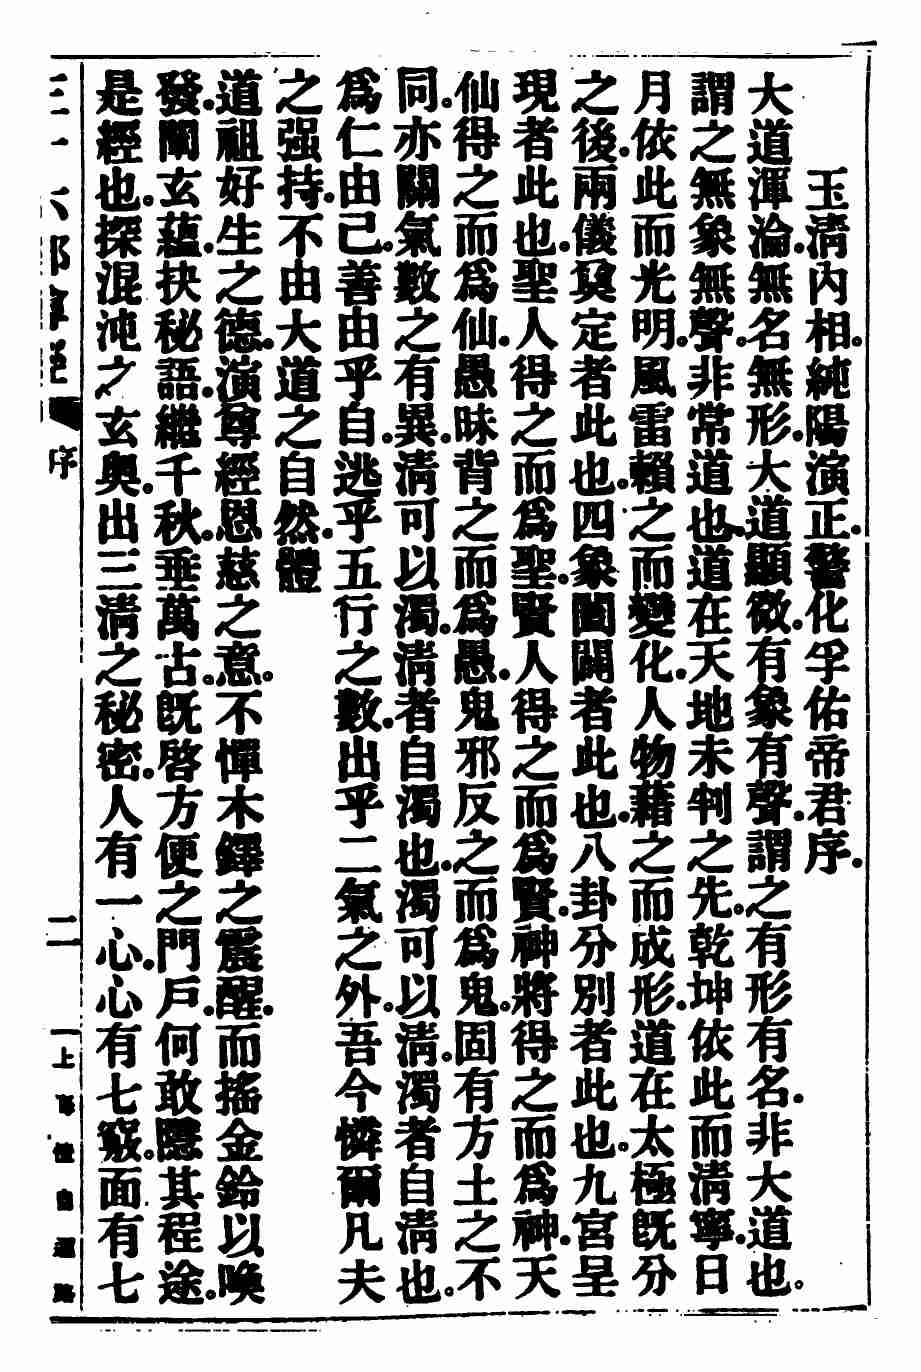 玉淸內相。純陽演正。警化孚佑帝君序。
大道渾淪。無名無形。大道顯微。有象有聲。謂之有形有名。非大道也。
謂之無象無聲。非常道也。道在天地未判之先。乾坤依此而淸寧。日
月依此而光明。風雷賴之而變化。人物藉之而成形。道在太極旣分
之後。兩儀奠定者此也。四象闔闢者此也。八卦分別者此也。九宮呈
現者此也。聖人得之而爲聖。賢人得之而爲賢。神將得之而爲神。天
仙得之而爲仙。愚昧背之而爲愚。鬼邪反之而爲鬼。固有方士之不
同。亦關氣數之有異。淸可以濁。淸者自濁也。濁可以淸。濁者自淸也。
爲仁由己。善由乎自。逃乎五行之數。出乎二氣之外。吾今憐爾凡夫
之强持。不由大道之自然。體
道祖好生之德。演尊經恩慈之意。不憚木鐸之震醒。而搖金鈴以喚
發。闡玄蘊。抉秘語。繼千秋。垂萬古。旣啓方便之門戶。何敢隱其程途。
是經也。探混沌之玄奧。出三淸之秘密。人有一心。心有七竅。面有七
三十六部尊經 序 二